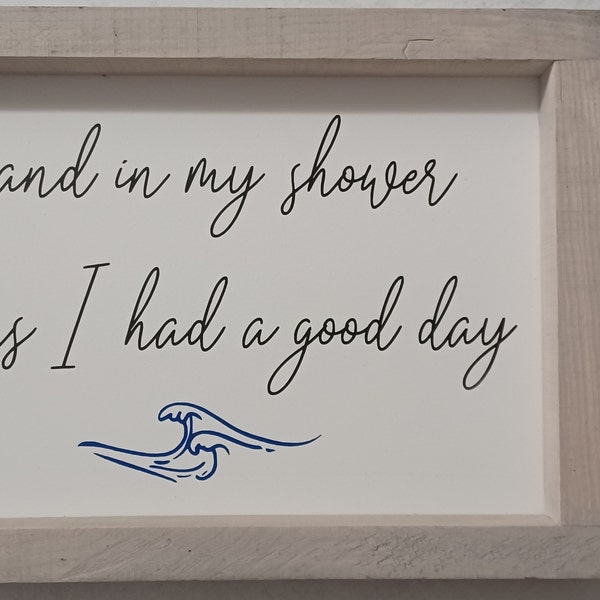 and in my shower
s I had a good day